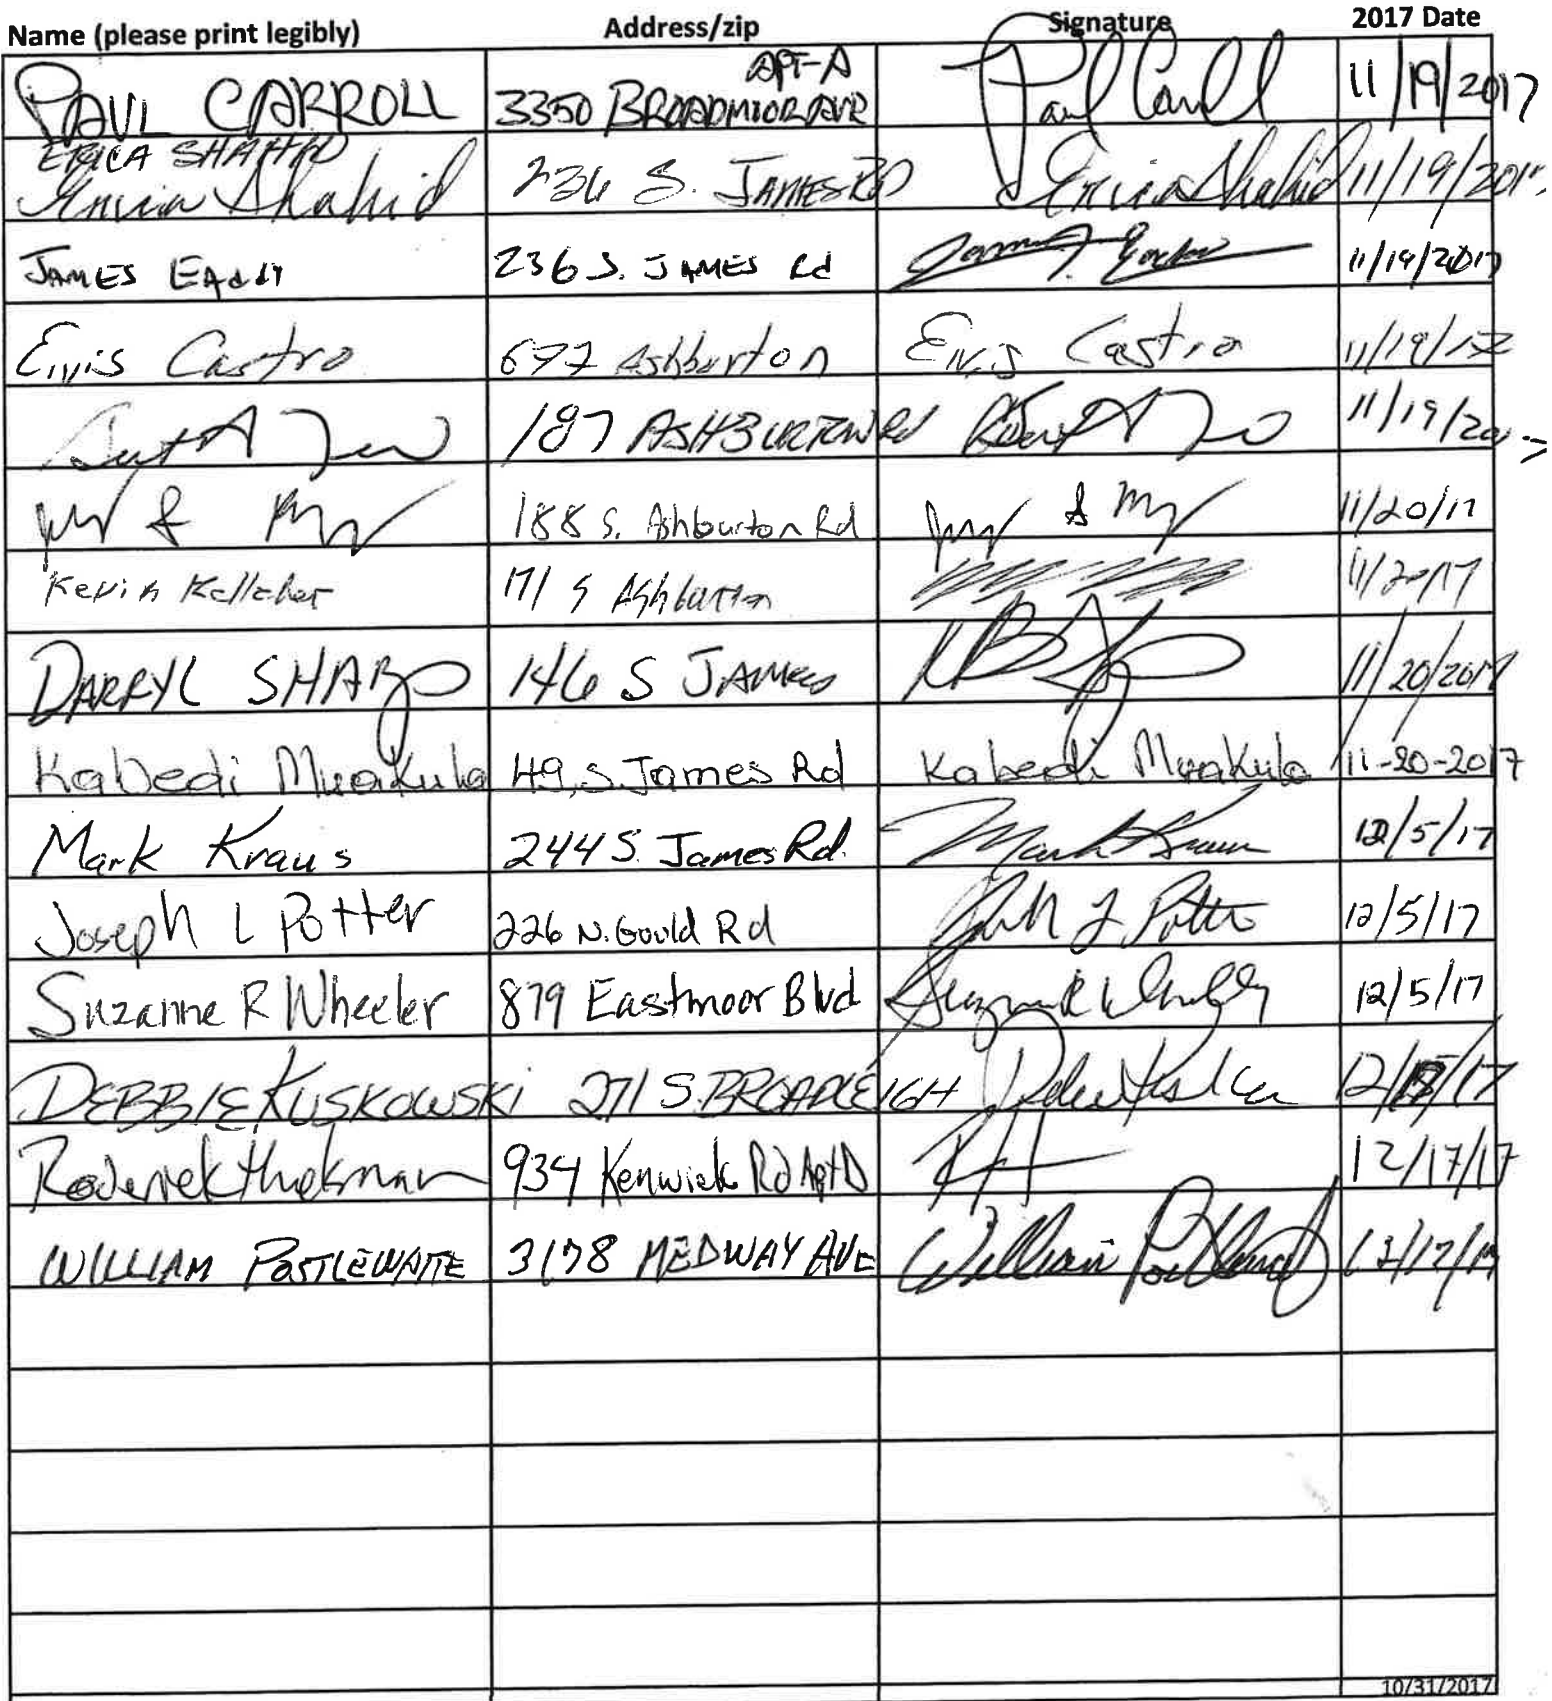 Name (please print legibly) Address/zip Signature 2017 Date
APT-A
PAUL CARROLL 3350 BROADMOOR AVE Paul Carroll 11/19/2017
ERICA SHAHID
Erica Shahid 236 S. JAMES RD Erica Shahid 11/19/2017
JAMES EADDY 236 S. JAMES Rd 11/19/2017
Elvis Castro 677 Ashburton Elvis Castro 11/19/17
187 ASHBURTON Rd 11/19/2017
188 S. Ashburton Rd 11/20/17
Kevin Kelleher 171 S Ashburton 11/20/17
DARRYL SHARP 146 S JAMES 11/20/2017
Kabedi Mwakula 49, S. James Rd Kabedi Mwakula 11-20-2017
Mark Kraus 244 S. James Rd. Mark Kraus 12/5/17
Joseph L Potter 226 N. Gould Rd 12/5/17
Suzanne R Wheeler 879 Eastmoor Blvd Suzanne R Wheeler 12/5/17
DEBBIE KUSKOWSKI 271 S. BROADLEIGH
Roderick 934 Kenwick Rd Apt D 12/17/17
WILLIAM POSTLEWAITE 3178 MEDWAY AVE William 12/17/17
10/31/2017